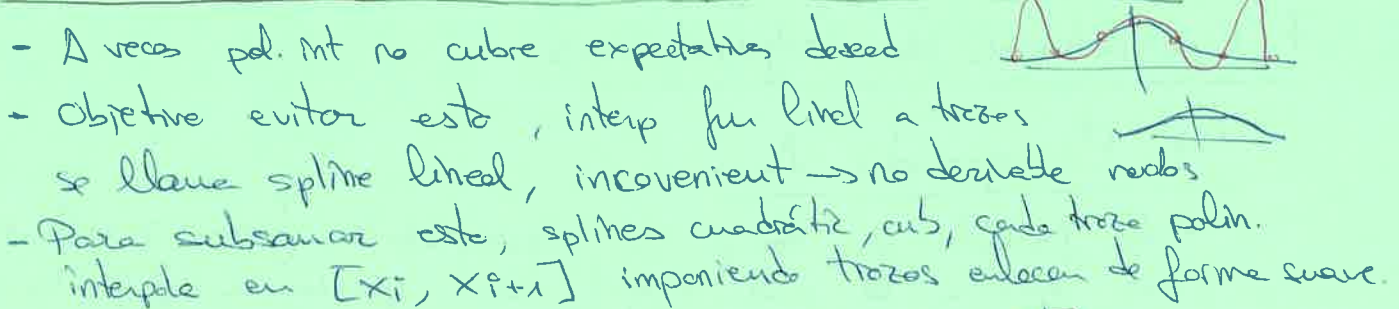 - A veces pol. int no cubre expectativas desead
- Objetive evitar esto, interp fun lineal a trozos
se llama spline lineal, incovenient → no derivable nodos
- Para subsanar esto, splines cuadrátic, cub, cada trozo polin.
interpola en [xi, xi+1] imponiendo trozos enlacen de forma suave.